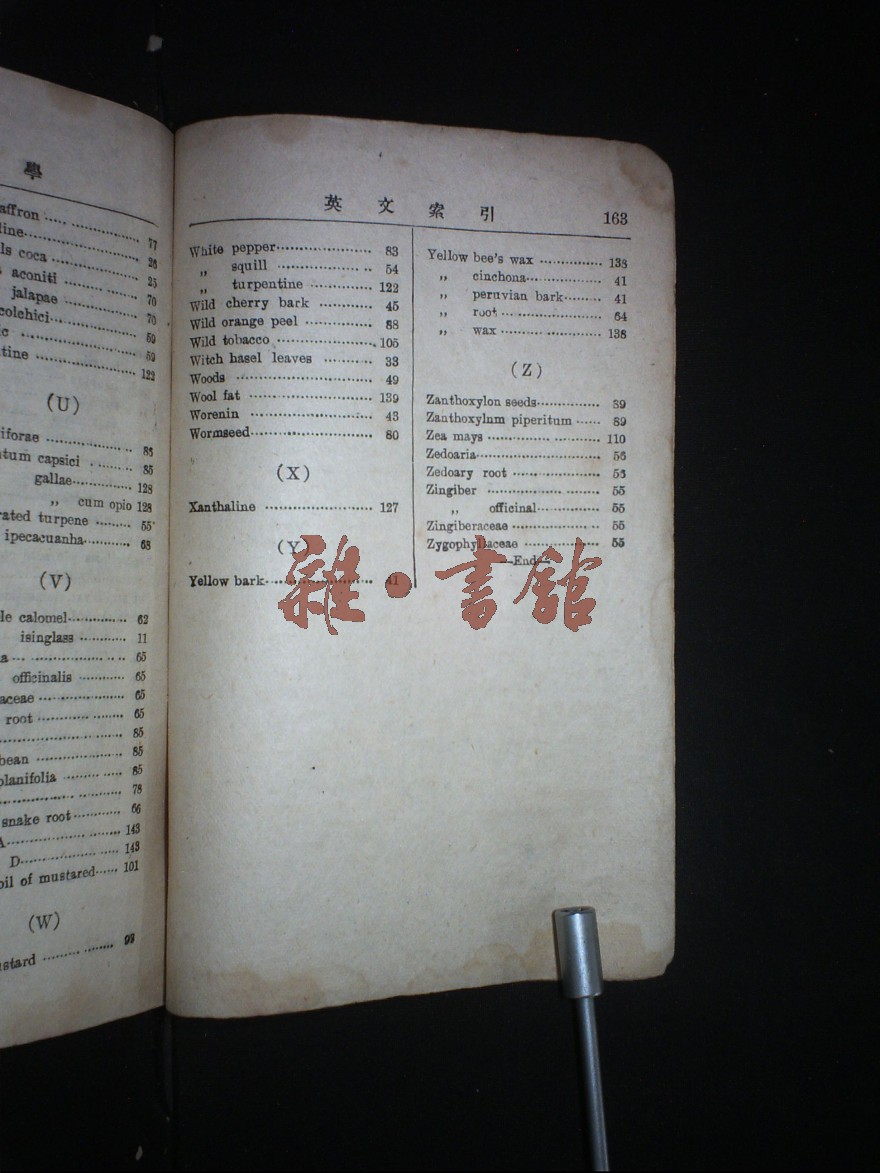 學
affron ..... 77
tine..... 26
ls coca ..... 25
aconiti ..... 70
jalapae ..... 70
colchici..... 59
c ..... 59
tine ..... 122
(U)
iforae ..... 85
tum capsici ..... 85
gallae..... 128
„ cum opio 128
rated turpene ..... 55
ipecacuanha..... 68
(V)
le calomel..... 62
isinglass ..... 11
a ..... 65
officinalis ..... 65
aceae ..... 65
root ..... 65
..... 85
bean ..... 85
planifolia ..... 85
..... 78
snake root ..... 66
A ..... 143
D ..... 143
oil of mustared ..... 101
(W)
stard .....
英文索引 163
White pepper ..... 83
„ squill ..... 54
„ turpentine ..... 122
Wild cherry bark ..... 45
Wild orange peel ..... 88
Wild tobacco ..... 105
Witch hasel leaves ..... 33
Woods ..... 49
Wool fat ..... 139
Worenin ..... 43
Wormseed ..... 80
(X)
Xanthaline ..... 127
(Y)
Yellow bark ..... 41
Yellow bee's wax ..... 138
„ cinchona ..... 41
„ peruvian bark ..... 41
„ root ..... 64
„ wax ..... 138
(Z)
Zanthoxylon seeds ..... 89
Zanthoxylum piperitum ..... 89
Zea mays ..... 110
Zedoaria ..... 56
Zedoary root ..... 56
Zingiber ..... 55
„ officinal ..... 55
Zingiberaceae ..... 55
Zygophyllaceae ..... 55
—End—
雜·書館